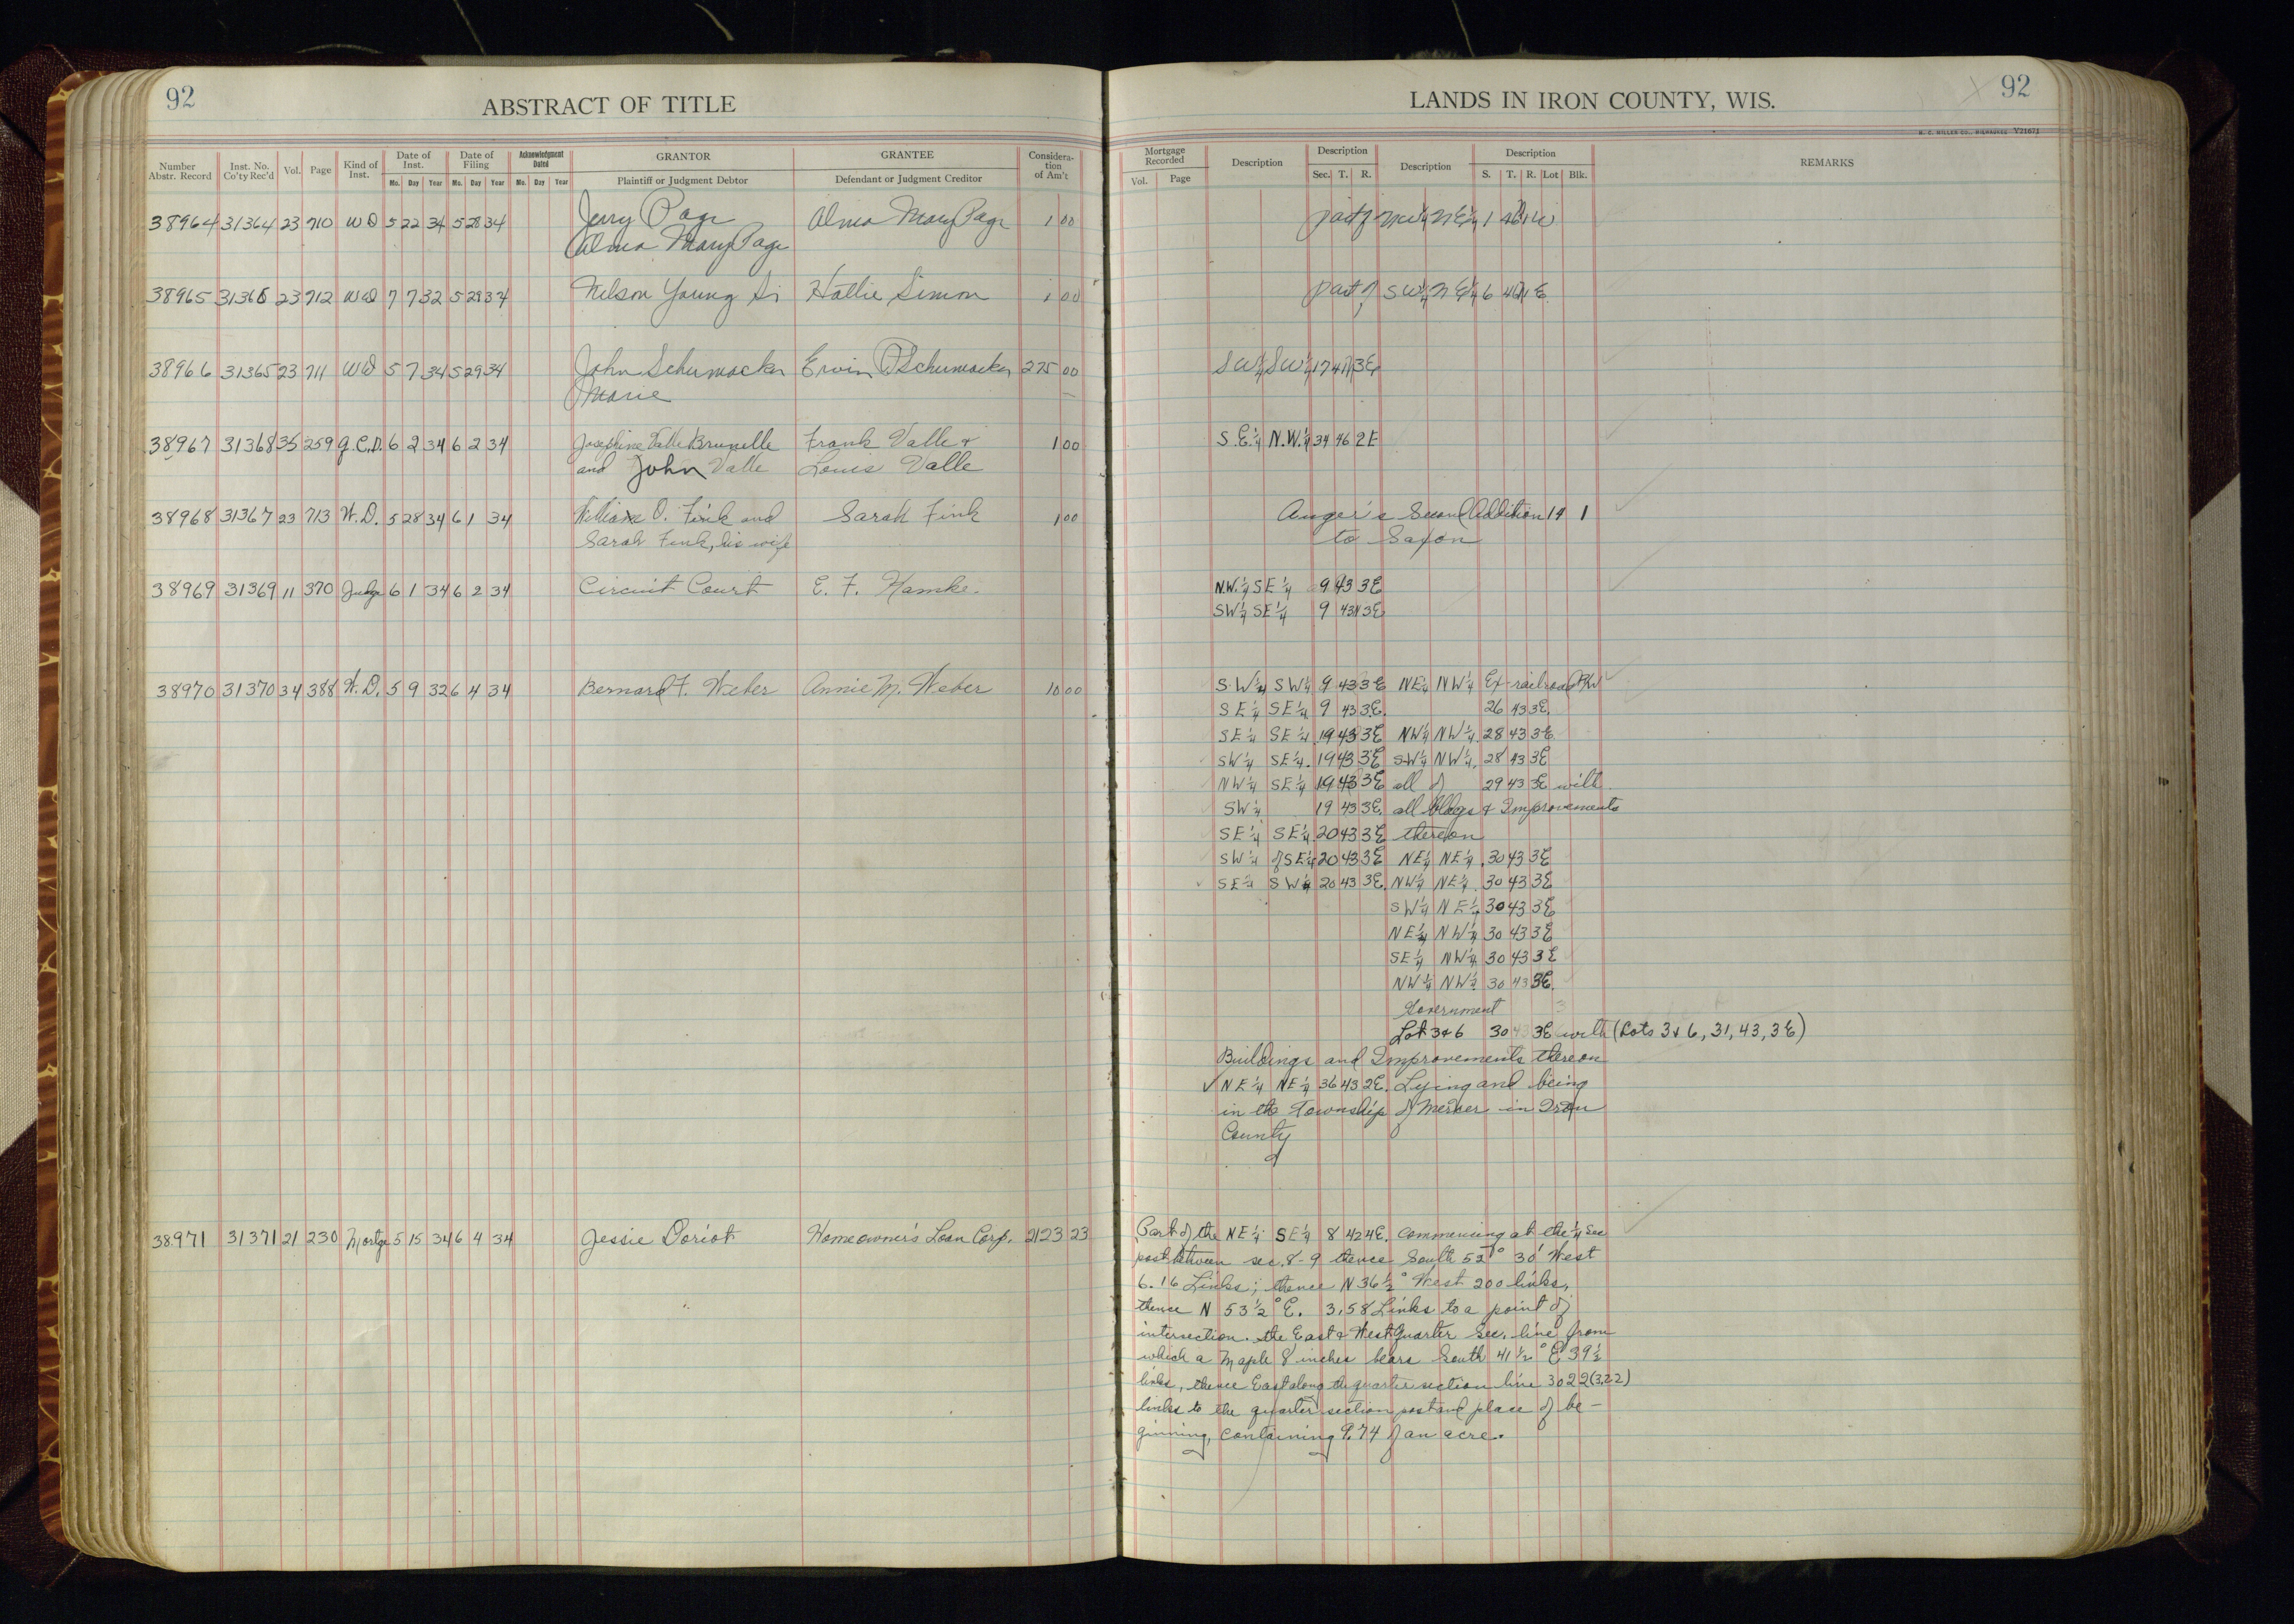 92
ABSTRACT OF TITLE
Number Abstr. Record Inst. No. Co'ty Rec'd Vol. Page Kind of Inst. Date of Inst. Mo. Day Year Date of Filing Mo. Day Year Acknowledgment Dated Mo. Day Year GRANTOR Plaintiff or Judgment Debtor GRANTEE Defendant or Judgment Creditor Consideration of Am't
38964 31364 23 710 WD 5 22 34 5 28 34 Jerry Page Alma Mary Page 1 00
Alma Mary Page
38965 31366 23 712 WD 7 7 32 5 29 34 Nelson Young Hattie Simon 1 00
38966 31365 23 711 WD 5 7 34 5 29 34 John Schumacker Ervin Schumacker 225 00
Marie
38967 31368 35 259 Q.C.D. 6 2 34 6 2 34 Josephine Valle Brunelle Frank Valle & 1 00
and John Valle Louis Valle
38968 31367 23 713 W.D. 5 28 34 6 1 34 William O. Fink and Sarah Fink 1 00
Sarah Fink, his wife
38969 31369 11 370 Judg 6 1 34 6 2 34 Circuit Court E. F. Hamke.
38970 31370 34 388 W.D. 5 9 32 6 4 34 Bernard F. Weber Annie M. Weber 10 00
38971 31371 21 230 Mortg 5 15 34 6 4 34 Jessie Doriot Homeowner's Loan Corp. 2123 23
LANDS IN IRON COUNTY, WIS.
92
H. C. MILLER CO., MILWAUKEE V21671
Mortgage Recorded Vol. Page Description Description Sec. T. R. Description Description S. T. R. Lot Blk. REMARKS
part of NW¼ NE¼ 1 46 1W
part of SW¼ NE¼ 6 46 1E
SW¼ SW¼ 17 47 3E
S.E.¼ N.W.¼ 34 46 2E
Auger's Second Addition 14 1
to Saxon
N.W.¼ SE¼ 9 43 3E
SW¼ SE¼ 9 43N 3E
SW¼ SW¼ 9 43 3E NE¼ NW¼ Ex-railroad R/W
SE¼ SE¼ 9 43 3E. 26 43 3E.
SE¼ SE¼ 19 43 3E NW¼ NW¼ 28 43 3E
SW¼ SE¼ 19 43 3E SW¼ NW¼ 28 43 3E
NW¼ SE¼ 19 43 3E all of 29 43 3E with
SW¼ 19 43 3E. all bldgs & Improvements
SE¼ SE¼ 20 43 3E thereon
SW¼ of SE¼ 20 43 3E NE¼ NE¼ 30 43 3E
SE¼ SW¼ 20 43 3E. NW¼ NE¼ 30 43 3E
SW¼ NE¼ 30 43 3E
NE¼ NW¼ 30 43 3E
SE¼ NW¼ 30 43 3E
NW¼ NW¼ 30 43 3E.
Government
Lot 3&6 30 43 3E with (Lots 3 & 6, 31, 43, 3E)
Buildings and Improvements thereon
NE¼ NE¼ 36 43 2E. Lying and being
in the Township of Mercer in Iron
County
Part of the NE¼ SE¼ 8 42 4E. commencing at the ¼ Sec
post between sec. 8-9 thence South 52° 30' West
6.16 Links; thence N 36½° West 200 links,
thence N 53½° E. 3.58 Links to a point of
intersection. the East & West Quarter Sec. line from
which a Maple 8 inches bears South 41½° E 39½
links, thence East along the quarter section line 3022 (3.22)
links to the quarter section post and place of be-
ginning, containing 9.74 of an acre.